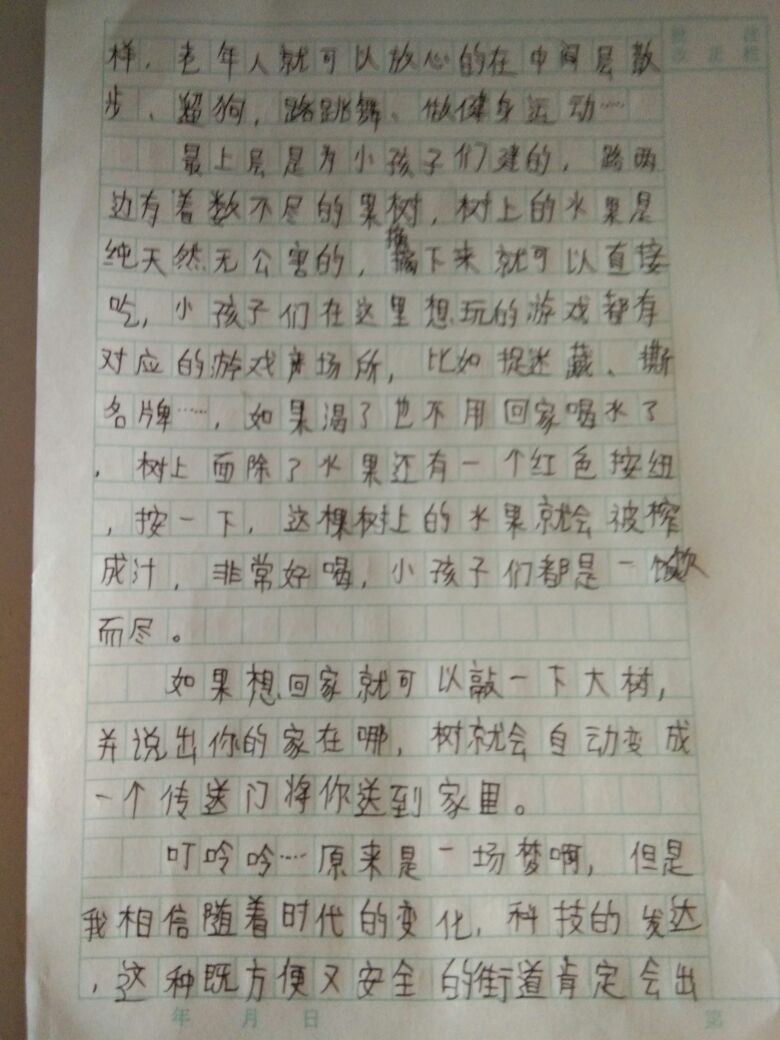 样，老年人就可以放心的在中间层散
步、遛狗，跳舞、做健身运动……
最上层是为小孩子们建的，路两
边有着数不尽的果树，树上的水果是
纯天然无公害的，摘下来就可以直接
吃，小孩子们在这里想玩的游戏都有
对应的游戏场所，比如捉迷藏、撕
名牌……，如果渴了也不用回家喝水了
，树上面除了水果还有一个红色按纽
，按一下，这棵树上的水果就会被榨
成汁，非常好喝，小孩子们都是一饮
而尽。
如果想回家就可以敲一下大树，
并说出你的家在哪，树就会自动变成
一个传送门将你送到家里。
叮呤呤……原来是一场梦啊，但是
我相信随着时代的变化，科技的发达
，这种既方便又安全的街道肯定会出
年 月 日 第